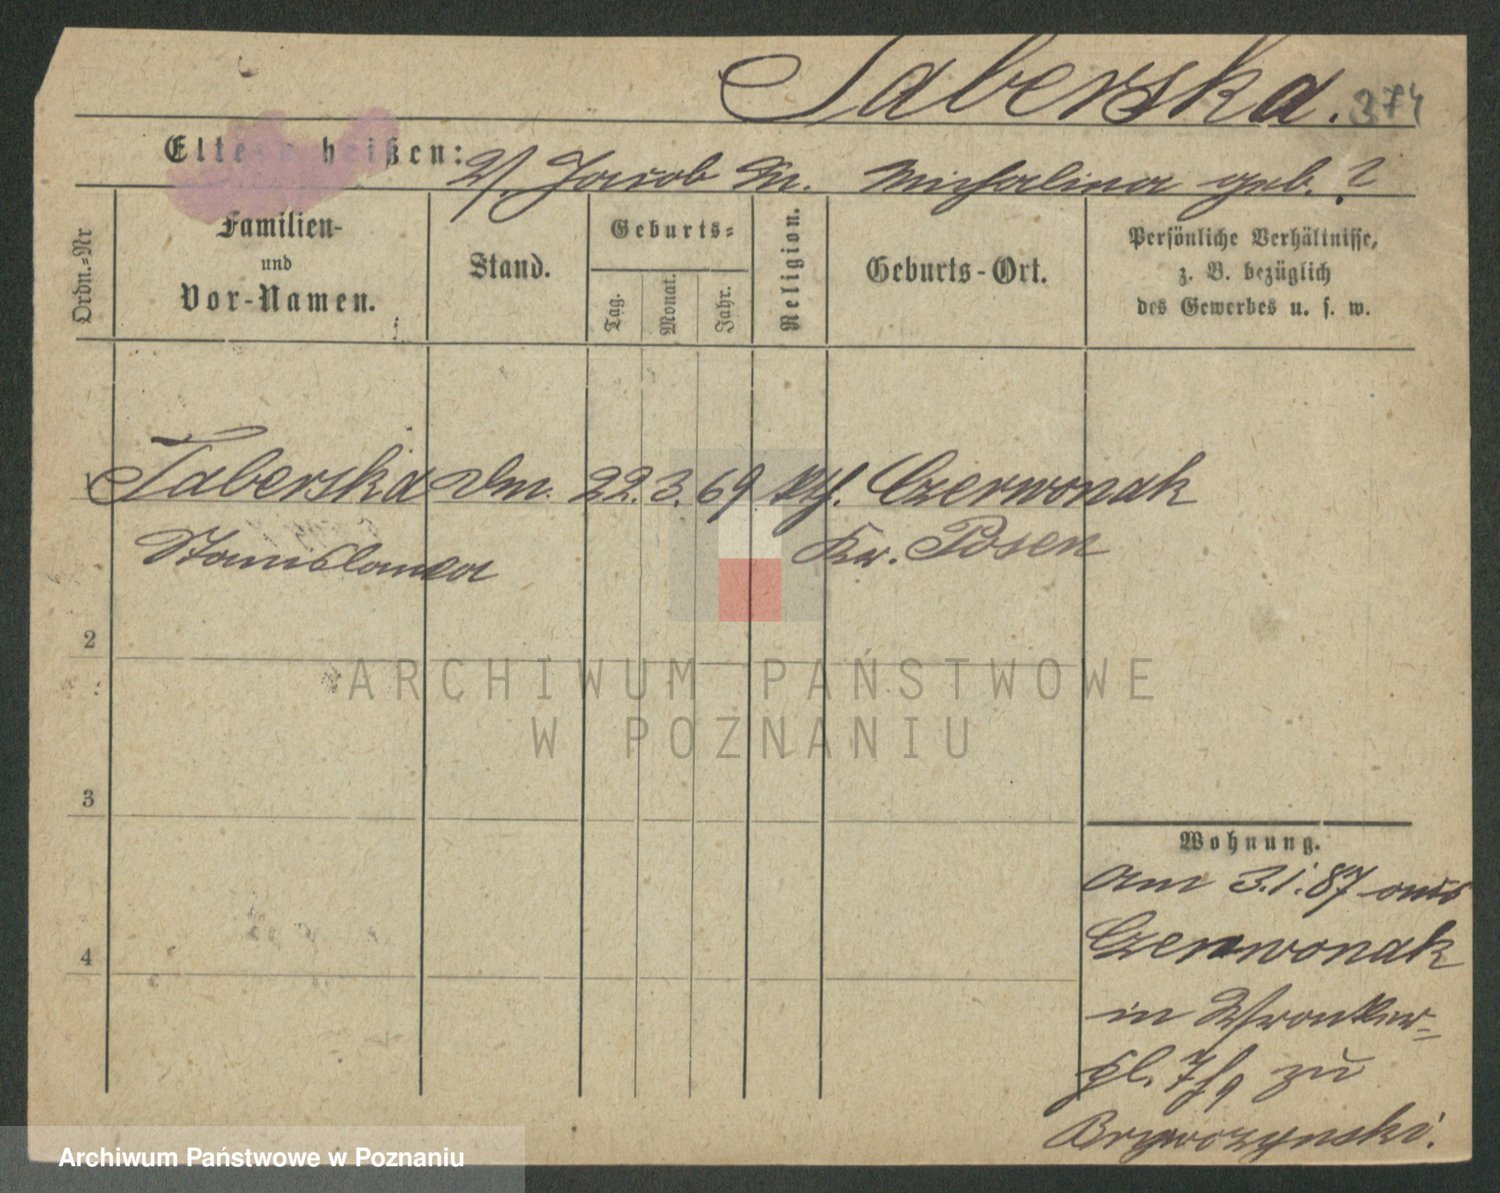 Taberska. 374
Eltern heißen: V. Jacob M. Michalina geb. ?
Ordn.-Nr
Familien-
und
Vor-Namen.
Stand.
Geburts-
Tag.
Monat.
Jahr.
Religion.
Geburts-Ort.
Persönliche Verhältnisse,
z. B. bezüglich
des Gewerbes u. s. w.
1 Taberska Dm. 22. 3. 69 kth. Czerwonak
Stanislawa Kr. Posen
2
3
4
Wohnung.
Am 3.1.87 aus
Czerwonak
in Wronker-
pl. 7/9 zu
ARCHIWUM PAŃSTWOWE
W POZNANIU
Archiwum Państwowe w Poznaniu